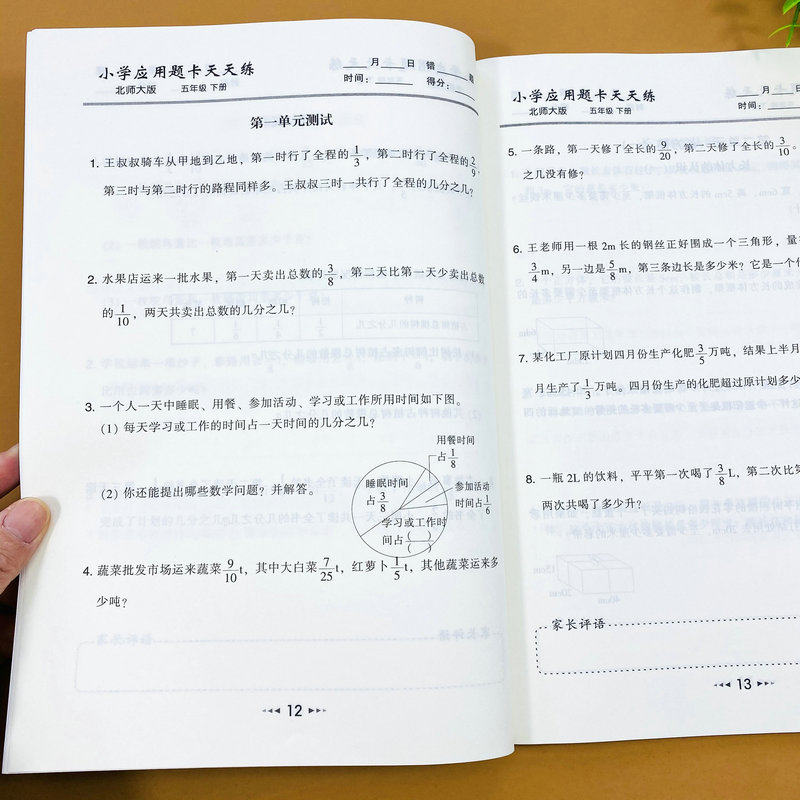 小学应用题卡天天练
北师大版 五年级 下册
月 日 错 题
时间： 得分：
第一单元测试
1. 王叔叔骑车从甲地到乙地，第一时行了全程的1/3，第二时行了全程的2/9，
第三时与第二时行的路程同样多。王叔叔三时一共行了全程的几分之几？
2. 水果店运来一批水果，第一天卖出总数的3/8，第二天比第一天少卖出总数
的1/10，两天共卖出总数的几分之几？
3. 一个人一天中睡眠、用餐、参加活动、学习或工作所用时间如下图。
(1) 每天学习或工作的时间占一天时间的几分之几？
(2) 你还能提出哪些数学问题？并解答。
用餐时间
占1/8
睡眠时间
占3/8
参加活动
时间占1/6
学习或工作时
间占( )/( )
4. 蔬菜批发市场运来蔬菜9/10t，其中大白菜7/25t，红萝卜1/5t，其他蔬菜运来多
少吨？
家长评语
12
小学应用题卡天天练
北师大版 五年级 下册
月 日
时间：
5. 一条路，第一天修了全长的9/20，第二天修了全长的3/10。
之几没有修？
6. 王老师用一根 2m 长的钢丝正好围成一个三角形，量
3/4m，另一边是5/8m，第三条边长是多少米？它是一个
7. 某化工厂原计划四月份生产化肥3/5万吨，结果上半月
月生产了1/3万吨。四月份生产的化肥超过原计划多少
8. 一瓶 2L 的饮料，平平第一次喝了3/8L，第二次比第
两次共喝了多少升？
家长评语
13